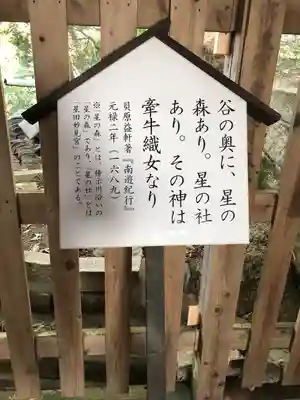 谷の奥に、星の
森あり。星の社
あり。その神は
牽牛織女なり
貝原益軒著『南遊紀行』
元禄二年(一六八九)
※「星の森」とは、傍示川沿いの
「星の森」であり、「星の社」とは
「星田妙見宮」のことである。